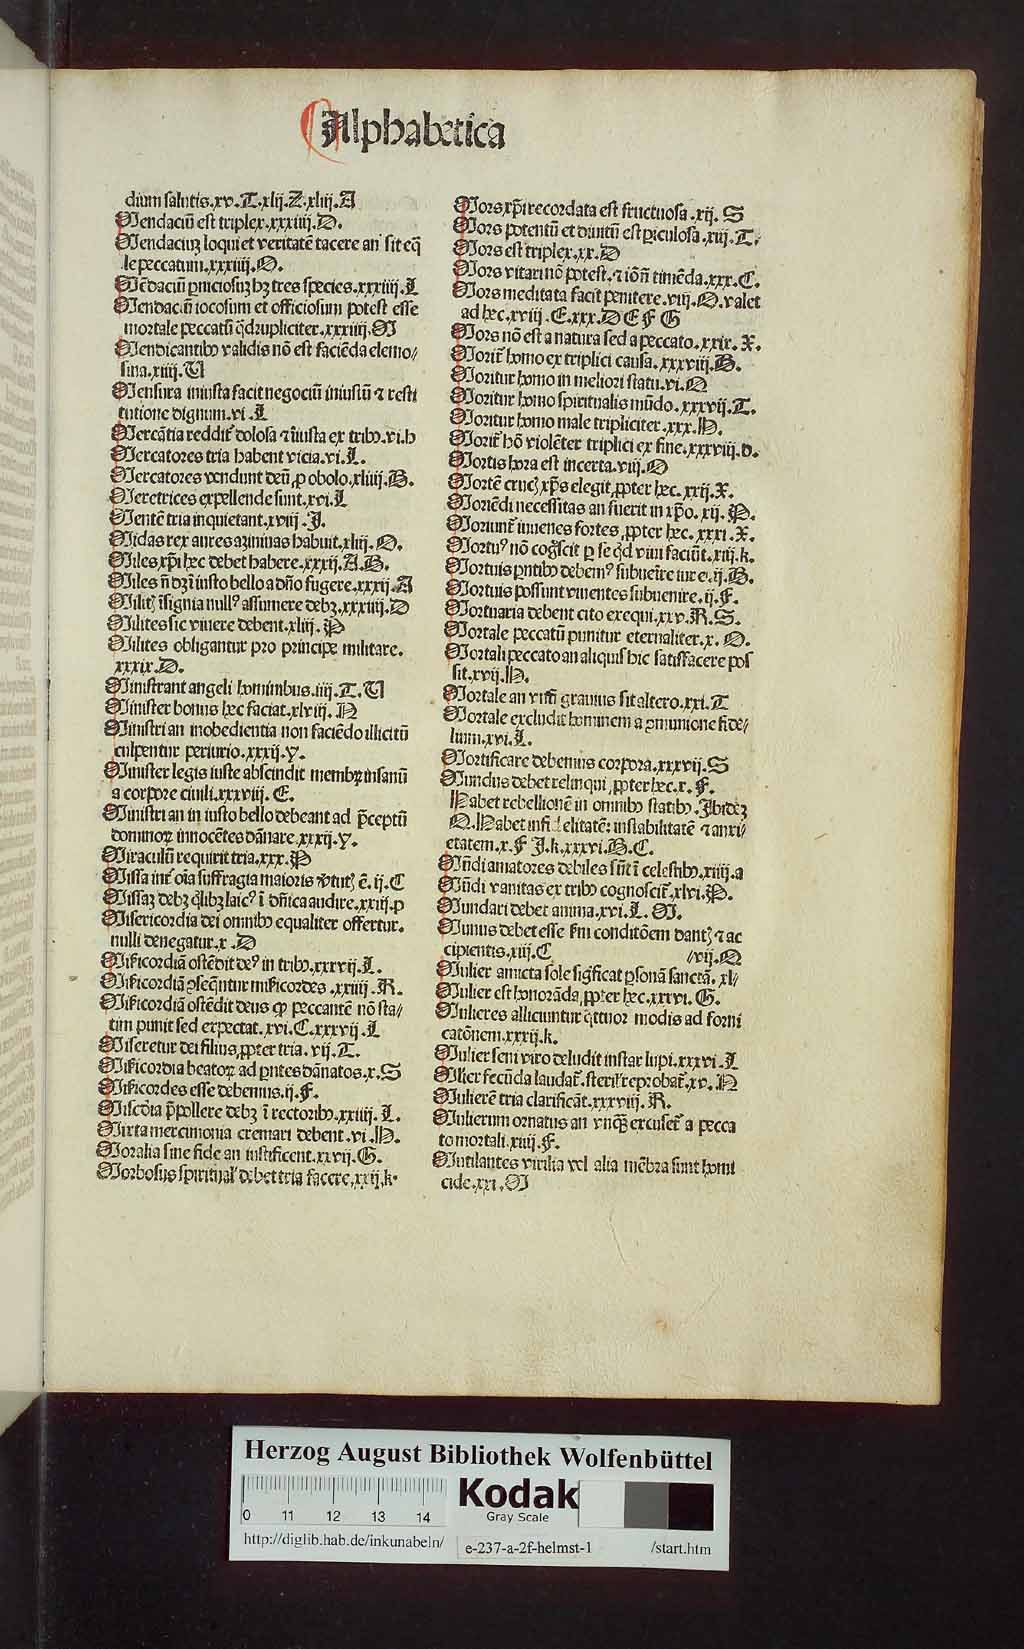 Alphabetica
dium salutis.xv.T.xlij.Z.xliij.A
Mendaciū est triplex.xxxiiij.D.
Mendaciuʒ loqui et veritatē tacere an sit eq̄
le peccatum.xxxiiij.O.
Mēdaciū ꝑniciosuʒ hʒ tres species.xxxiiij.L
Mendaciū iocosum et officiosum potest esse
mortale peccatū qdrupliciter.xxxiiij.M
Mendicantibꝰ validis nō est faciēda elemo/
sina.xiiij.V
Mensura iniusta facit negociū iniustū ⁊ resti
tutione dignum.vi.L
Mercātia reddit̄ dolosa ⁊ iiusta ex tribꝰ.vi.h
Mercatores tria habent vicia.vi.L.
Mercatores vendunt deū ꝓ obolo.xliiij.B.
Meretrices expellende sunt.xvi.L
Mentē tria inquietant.xviij.J.
Midas rex aures azininas habuit.xliij.O.
Miles xp̄i hec debet habere.xxxij.A.B.
Miles n̄ dʒ i iusto bello a dn̄o fugere.xxxij.A
Militʒ isignia nullꝰ assumere debʒ.xxxiiij.D
Milites sic viuere debent.xliij.P
Milites obligantur pro principe militare.
xxxix.D.
Ministrant angeli hominibus.iiij.T.V
Minister bonus hec faciat.xlviij.N
Ministri an inobedientia non faciēdo illicitū
culpentur periurio.xxxij.Y.
Minister legis iuste abscindit membꝝ insanū
a corpore ciuili.xxxviij.E.
Ministri an in iusto bello debeant ad p̄ceptū
dominoꝝ innocētes dānare.xxxij.Y.
Miraculū requirit tria.xxx.P
Missa int̄ oīa suffragia maioris v̄tutʒ ē.ij.C
Missaʒ debʒ qlibʒ laicꝰ i dn̄ica audire.xxiij.p
Misericordia dei omnibꝰ equaliter offertur.
nulli denegatur.x.D
Mīsicordiā ostēdit deꝰ in tribꝰ.xxxvij.L.
Mīsicordiā ꝯseqūntur misicordes.xxiiij.R.
Mīsicordiā ostēdit deus qꝫ peccantē nō sta/
tim punit sed expectat.xvi.C.xxxvij.L
Miseretur dei filius ꝓpter tria.vij.T.
Misicordia beatoꝝ ad ꝑntes dānatos.x.S
Misicordes esse debemus.ij.F.
Misc̄dia p̄pollere debʒ i rectoribꝰ.xxiiij.L.
Mixta mercimonia cremari debent.vi.H.
Moralia sine fide an iustificent.xxvij.G.
Morbosus spiritual' debet tria facere.xxij.k.
Mors xp̄i recordata est fructuosa.xij.S
Mors potentū et diuitū est ꝑiculosa.xiij.T.
Mors est triplex.xx.D
Mors vitari nō potest.⁊ iō nō timēda.xxx.C.
Mors meditata facit penitere.viij.O.valet
ad hec.xviij.E.xxx.D E F G
Mors nō est a natura sed a peccato.xxix.X.
Morit̄ homo ex triplici causa.xxxviij.B.
Moritur homo in meliori statu.vi.O
Moritur homo spiritualis mūdo.xxxvij.T.
Moritur homo male tripliciter.xxx.H.
Morit̄ hō violēter triplici ex fine.xxxviij.D.
Mortis hora est incerta.viij.O
Mortē crucʒ xp̄s elegit ꝓpter hec.xxij.X.
Moriēdi necessitas an fuerit in xp̄o.xij.P.
Moriunt̄ iuuenes fortes ꝓpter hec.xxxi.X.
Mortuꝰ nō cog̃scit ꝑ se qd viui faciūt.xiij.k.
Mortuis ꝑntibꝰ debemꝰ subuenire iure.ij.B.
Mortuis possunt viuentes subuenire.ij.F.
Mortuaria debent cito exequi.xxv.R.S.
Mortale peccatū punitur eternaliter.x.O.
Mortali peccato an aliquis hic satisfacere pos
sit.xvij.H.
Mortale an vnū grauius sit altero.xxi.T
Mortale excludit hominem a ꝯmunione fide/
lium.xvi.L.
Mortificare debemus corpora.xxxvij.S
Mundus debet relinqui ꝓpter hec.x.F.
Habet rebellionē in omnibꝰ statibꝰ.Ibideʒ
O.Habet infidelitatē: instabilitatē ⁊ anxi/
etatem.x.F J.k.xxxvi.B.C.
Mūdi amatores debiles sūt i celestibꝰ.xiiij.a
Mūdi vanitas ex tribꝰ cognoscit̄.xlvi.P.
Mundari debet anima.xvi.L.M.
Munus debet esse s̄m conditōem dantʒ ⁊ ac
cipientis.xiij.C //vij.O
Mulier amicta sole sigficat ꝑsonā sanctā.xl/
Mulier est honorāda ꝓpter hec.xxxvi.G.
Mulieres alliciuntur q̄ttuor modis ad forni
catōnem.xxxij.k.
Mulier seni viro deludit instar lupi.xxxvi.L
Mlier fecūda laudat̄.steril' reprobat̄.xv.N
Mulierē tria clarificāt.xxxviij.R.
Mulierum ornatus an vnqꝫ excuset̄ a pecca
to mortali.xiiij.F.
Mutilantes virilia vel alia mēbra sunt homi
cide.xxi.M
Herzog August Bibliothek Wolfenbüttel
0 11 12 13 14
Kodak
Gray Scale
http://diglib.hab.de/inkunabeln/ e-237-a-2f-helmst-1 /start.htm